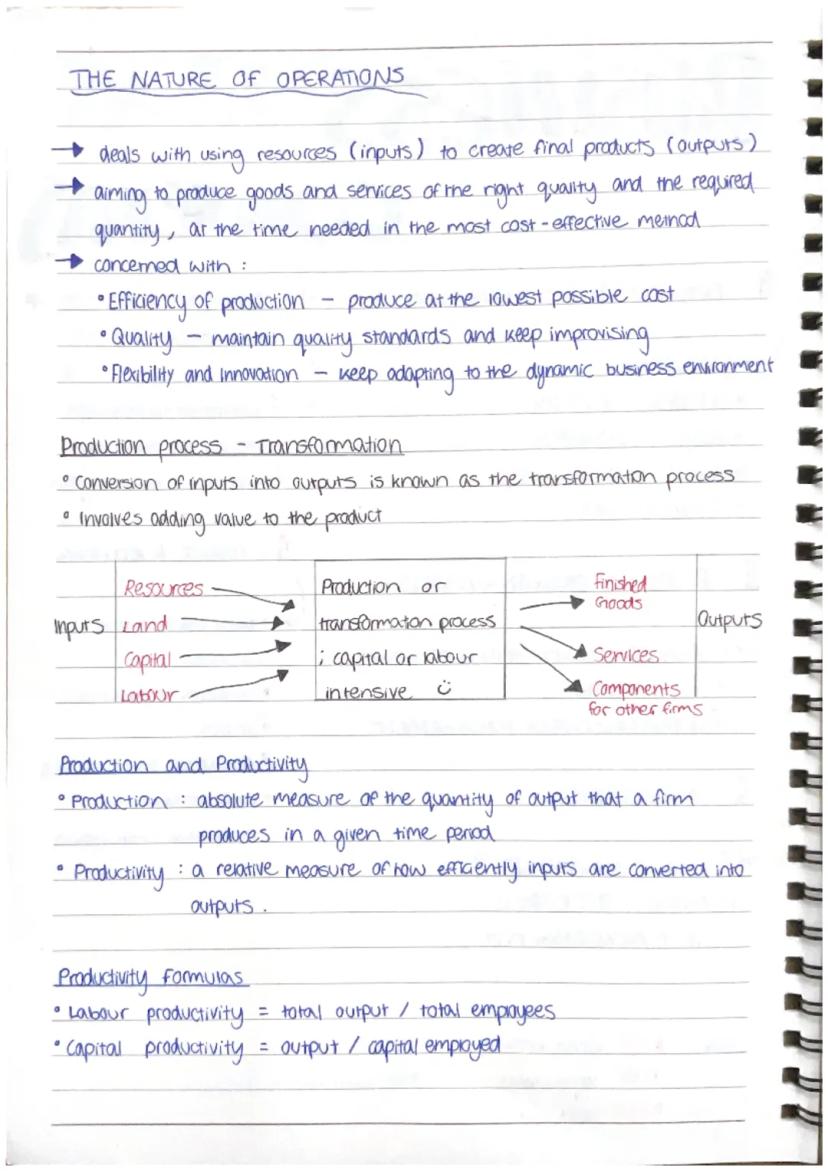 THE NATURE OF OPERATIONS
→ deals with using resources (inputs) to create final products (outputs)
→ aiming to produce goods and services of the right quality and the required
quantity, at the time needed in the most cost-effective method
→ concerned with :
• Efficiency of production - produce at the lowest possible cost
• Quality - maintain quality standards and keep improvising
• Flexibility and Innovation - keep adapting to the dynamic business environment
Production process - Transformation
• Conversion of inputs into outputs is known as the transformation process
• Involves adding value to the product
Inputs
Resources
Land
Capital
Labour
Production or
transformation process
; capital or labour
intensive ☺
Finished
Goods
Services
Components
for other firms
Outputs
Production and Productivity
• Production : absolute measure of the quantity of output that a firm
produces in a given time period
• Productivity : a relative measure of how efficiently inputs are converted into
outputs.
Productivity formulas
• Labour productivity = total output / total employees
• Capital productivity = output / capital employed